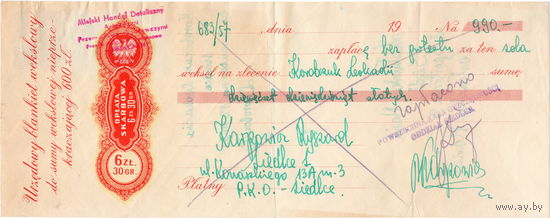 Miejski Handel Detaliczny
683/57, dnia 19 Na 990.-
zapłacę bez protestu za ten sola
weksel na zlecenie Korobank Leokadii sumę
dziewięćset dziewięćdziesiąt złotych
zapłacono
POWSZECHNA
ODDZIAŁ
Karpowia Ryszard
Siedlce
ul. Konarskiego 13A m-3
Płatny P.K.O. - Siedlce
Urzędowy blankiet wekslowy
do sumy wekslowej nieprze-
kraczającej 600 zł.
OPŁATA
SKARBOWA
6 ZŁ. 30 GR
6 ZŁ.
30 GR.
www.ay.by